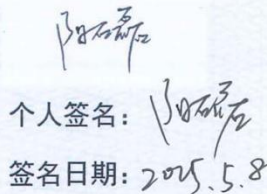 阳磊
个人签名：阳磊
签名日期：2025.5.8